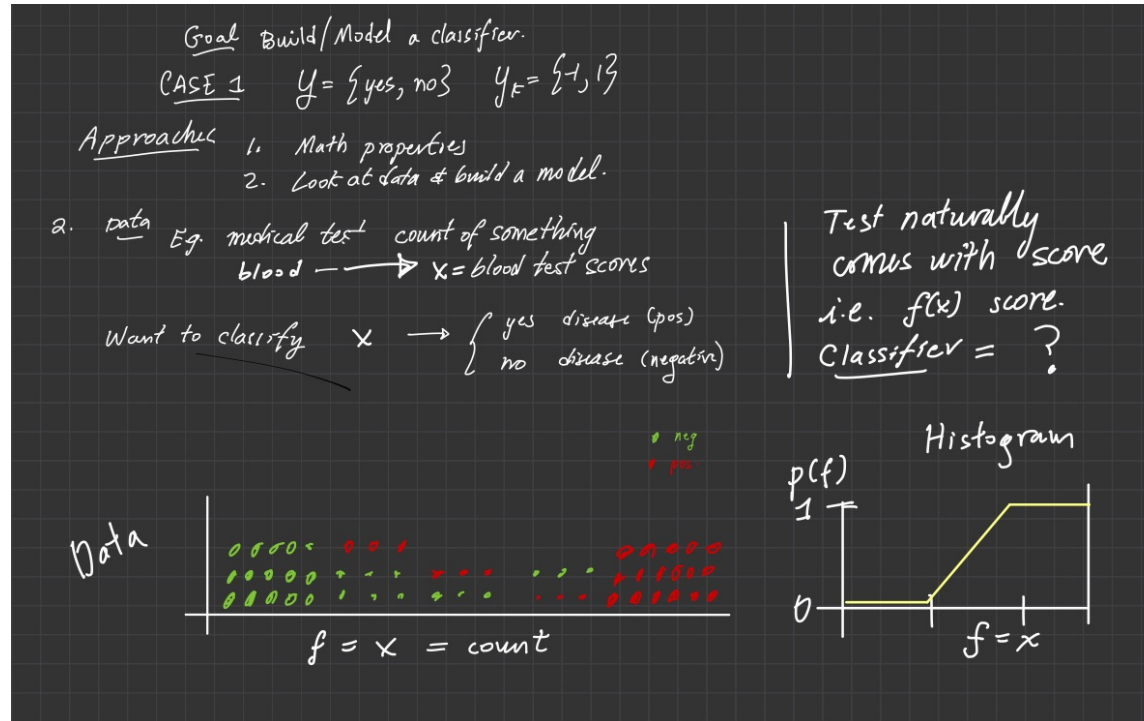 Goal Build/Model a classifier.
CASE 1 Y = {yes, no} y_k = {-1, 1}
Approaches 1. Math properties
2. Look at data & build a model.
2. Data Eg. medical test count of something
blood → x = blood test scores
Want to classify x → { yes disease (pos)
no disease (negative)
Test naturally
comes with score
i.e. f(x) score.
Classifier = ?
neg
pos
Data
f = x = count
Histogram
p(f)
1
0
f = x